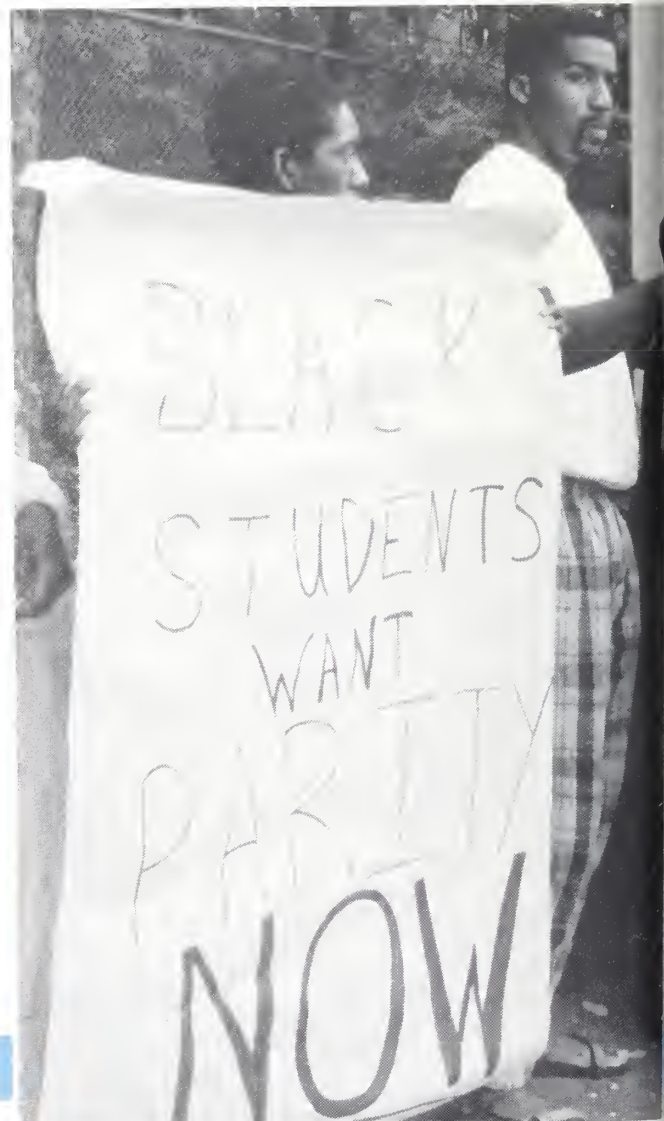 BLACK
STUDENTS
WANT
PARITY
NOW